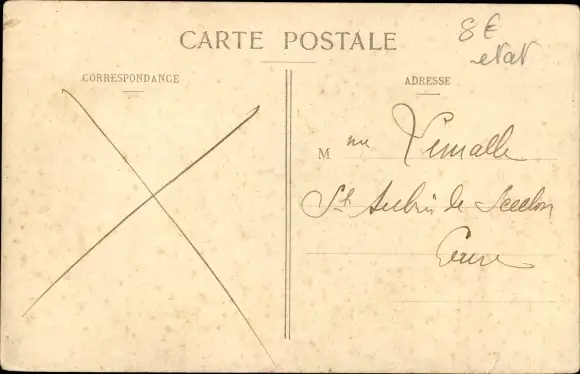 CARTE POSTALE
8 €
etat
CORRESPONDANCE
ADRESSE
Mme Vimalle
St Aubin de Scellon
Eure